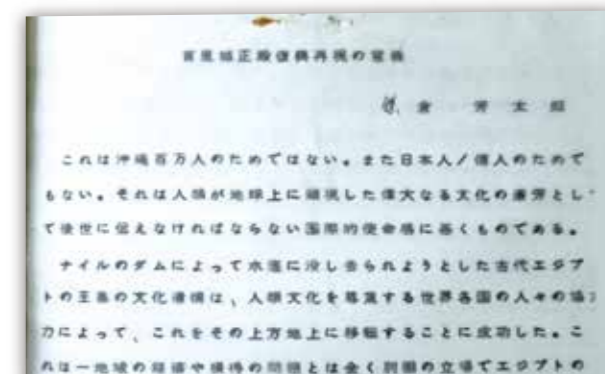 首里城正殿復興再現の意義
鎌倉芳太郎
これは沖縄百万人のためではない。また日本人ノ個人のためで
もない。それは人類が地球上に顕現した偉大なる文化の遺芳とし
て後世に伝えなければならない国際的使命感に基くものである。
ナイルのダムによって水底に没し去られようとした古代エジプ
トの王墓の文化遺構は、人類文化を尊重する世界各国の人々の協
力によって、これをその上方地上に移転することに成功した。こ
れは一地域の経済や維持の問題とは全く別個の立場でエジプトの